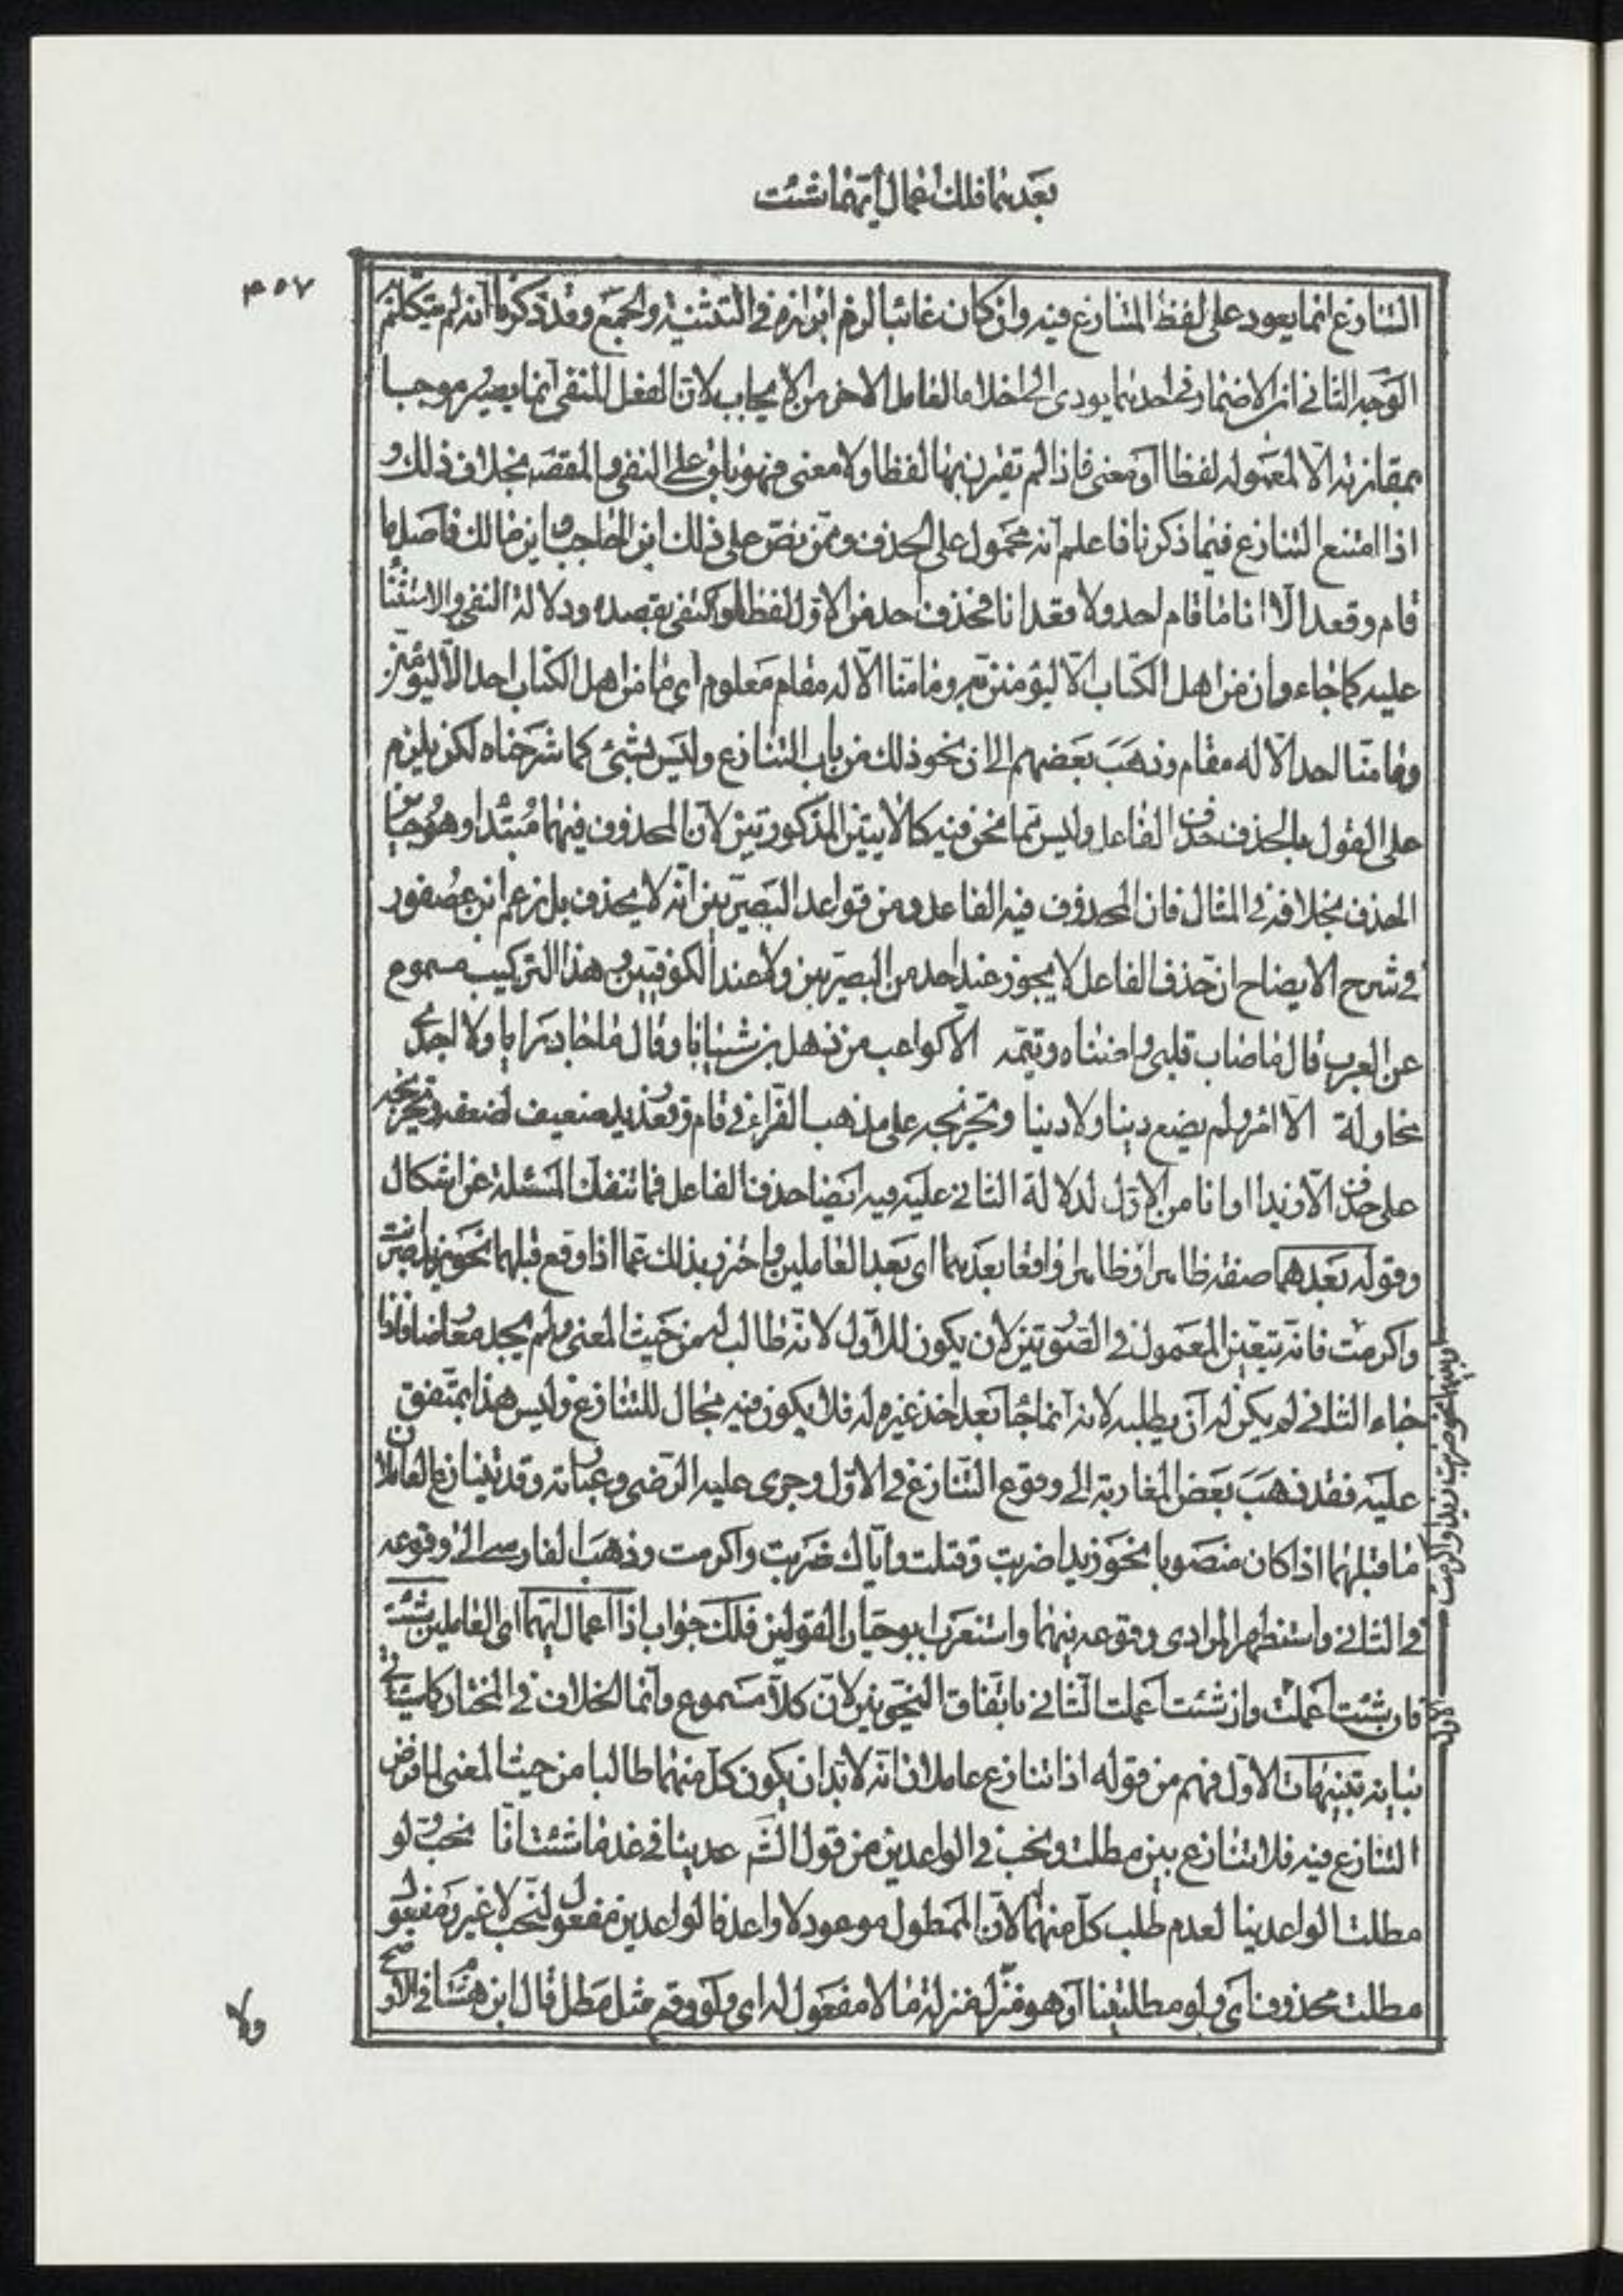 بعدهما فلك اعمال ايهما شئت
٣٥٧
التنازع انما يعود على لفظ المتنازع فيه وان كان غائبا لزم ابرازه في التثنية والجمع وقد ذكرنا انه لم يتكلم
الوجه الثاني ان الاضمار في احدهما يودى الى اخلاء العامل الاخر من الايجاب لان الفعل المنفى انما يصير موجبا
بمقارنة الا لمعموله لفظا او معنى فاذا لم تقترن بها لفظا ولا معنى فهو باق على النفى والمقصد بخلاف ذلك و
اذا امتنع التنازع فيما ذكرنا فاعلم انه محمول على الحذف وممن نص على ذلك ابن الحاجب وابن مالك فاصل ما
قام وقعد الا انا ما قام احد ولا قعد انا فحذف احد من الاول لفظا واكتفى بقصده ودلالة النفى والاستثنا
عليه كما جاء وان من اهل الكتاب الا ليؤمنن به وما منا الا له مقام معلوم اى ما من اهل الكتاب احد الا ليؤمنن
وما منا احد الا له مقام وذهب بعضهم الى ان نحو ذلك من باب التنازع وليس بشئ كما شرحناه لكن يلزم
على القول بالحذف حذف الفاعل وليس مما نحن فيه كالايتين المذكورتين لان المحذوف فيهما مبتدا وهو جائز
الحذف بخلافه في المثال فان المحذوف فيه الفاعل ومن قواعد البصريين انه لا يحذف بل زعم ابن عصفور
في شرح الايضاح ان حذف الفاعل لا يجوز عند احد من البصريين ولا عند الكوفيين وهذا التركيب مسموع
عن العرب قال ما صاب قلبى واضناه وتيمه الا كواعب من ذهل بن شيبانا وقال ما جاد رايا ولا اجدى
محاولة الا امرؤ لم يضع دينا ولا دنيا وتخريجه على مذهب الفراء في قام وقعد زيد ضعيف لضعفه وتخريجه
على حذف الا زيدا او انا من الاول لدلالة الثاني عليه فيه ايضا حذف الفاعل فما تنفك المسئلة عن اشكال
وقوله بعدهما صفة ظاهرا اى ظاهرا واقعا بعدهما اى بعد العاملين واحترز بذلك عما اذا وقع قبلهما نحو زيدا ضربت
واكرمت فانه يتعين المعمول في الصورتين لان يكون للاول لانه طالب له من حيث المعنى ولم يجد معارضا فاذا
جاء الثاني لم يكن له ان يطلبه لانه انما جاء بعد اخذ غيره له فلا يكون فيه مجال للتنازع وليس هذا بمتفق
عليه فقد ذهب بعض المغاربة الى وقوع التنازع في الاول وجرى عليه الرضى وعبارته وقد يتنازع العاملان
ما قبلهما اذا كان منصوبا نحو زيدا ضربت وقتلت واياك ضربت واكرمت وذهب الفارسى الى وقوعه
في الثاني واستظهر المرادى وقوعه بينهما واستغرب ابو حيان القولين فلك جواب اذا اعمال ايهما اى العاملين شئت
فان شئت اعملت وان شئت اعملت الثاني باتفاق النحويين لان كلا مسموع وانما الخلاف في المختار كما سياتى
بيانه تنبيهات الاول فهم من قوله اذا تنازع عاملان انه لا بد ان يكون كل منهما طالبا من حيث المعنى لما فرض
التنازع فيه فلا تنازع بين مطلت ونحب في الواعدين من قول الش عدينا في غد ما شئت انا نحب ولو
مطلت الواعدينا لعدم طلب كل منهما لان الممطول موعود لا واعد فالواعدين مفعول لنحب لا غير ومفعول
مطلت محذوف اى ولو مطلتينا او هو منزل منزلة ما لا مفعول له اى ولو وقع مثل مطل قال ابن هشام في الاوضح
ولا
بينهما نحو ضربت زيدا واكرمت
الاول